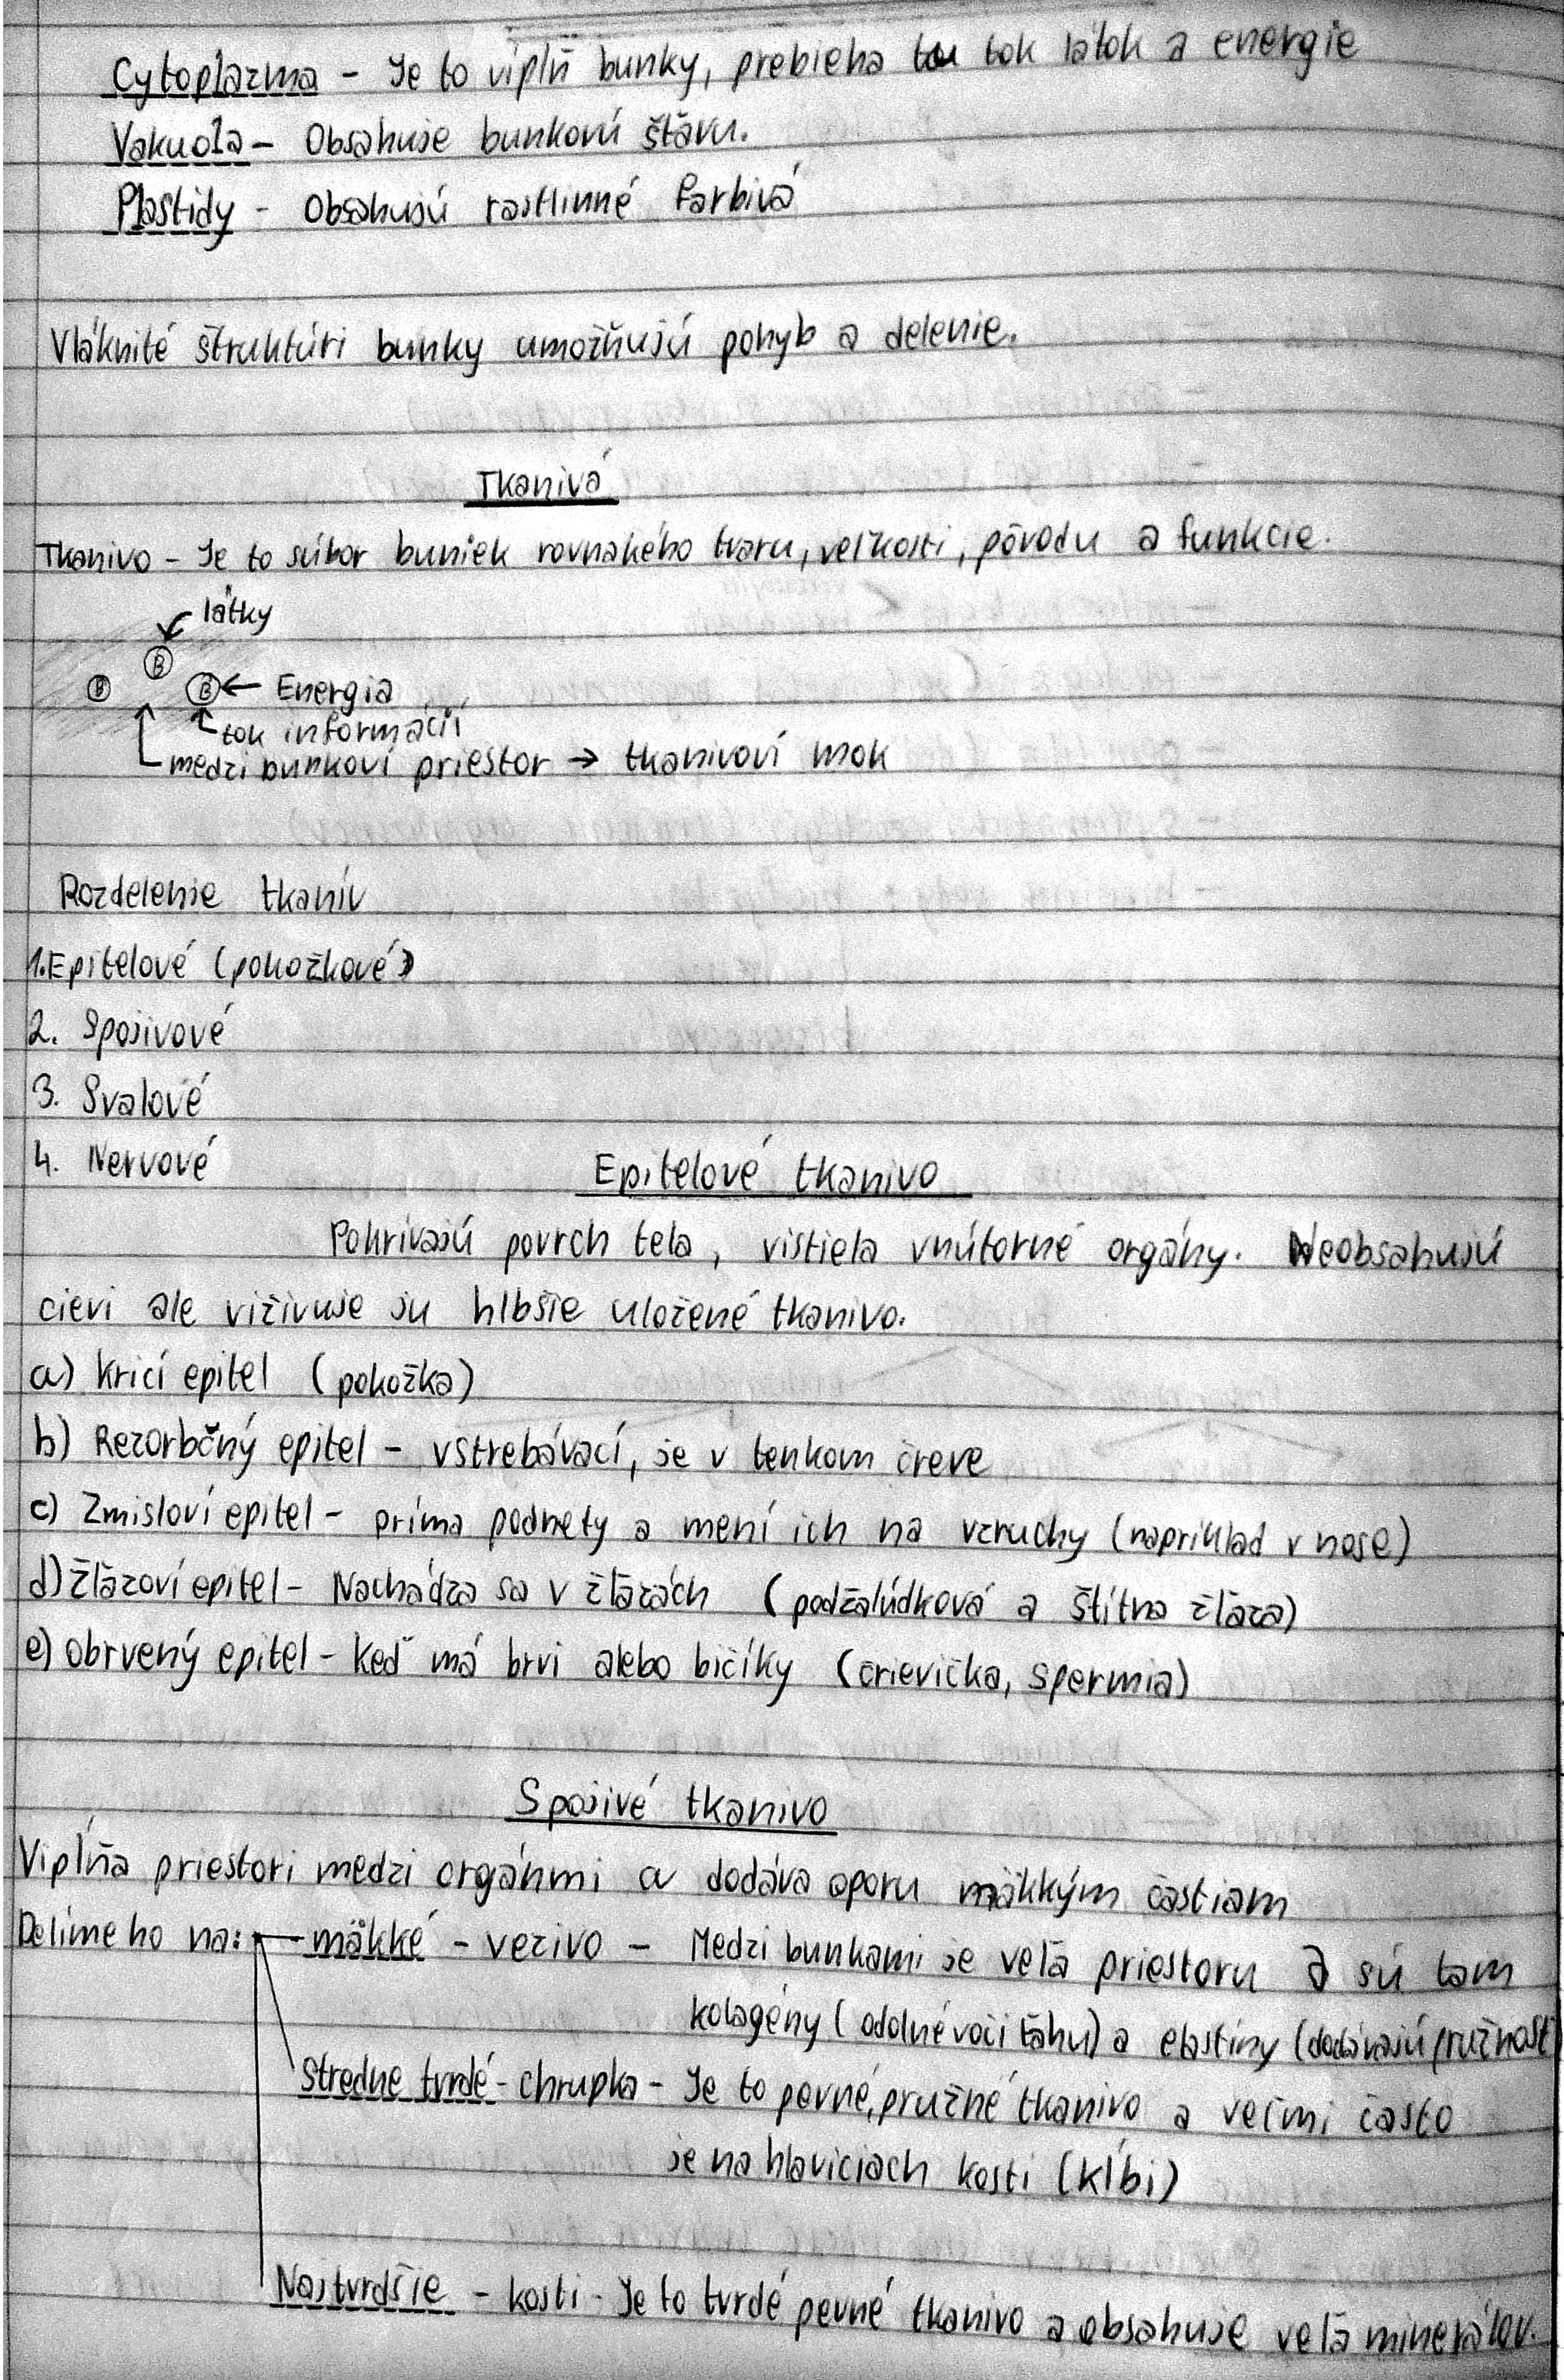 Cytoplazma - Je to viplň bunky, prebieha tu tok látok a energie
Vakuola - Obsahuje bunkovú šťavu.
Plastidy - Obsahujú rastlinné farbivá
Vláknité štruktúri bunky umožňujú pohyb a delenie.
Tkanivá
Tkanivo - Je to súbor buniek rovnakého tvaru, veľkosti, pôvodu a funkcie.
látky
B
B B ← Energia
tok informácií
medzi bunkoví priestor → tkanivoví mok
Rozdelenie tkanív
1. Epitelové (pokožkové)
2. Spojivové
3. Svalové
4. Nervové
Epitelové tkanivo
Pokrívajú povrch tela, vistiela vnútorné orgány. Neobsahujú
cievi ale viživuje ju hlbšie uložené tkanivo.
a) Kricí epitel (pokožka)
b) Rezorbčný epitel - vstrebávací, je v tenkom čreve
c) Zmisloví epitel - príma podnety a mení ich na vzruchy (napríklad v nose)
d) Žlázoví epitel - Nachádza sa v žlázách (podžalúdková a štítna žláza)
e) Obrvený epitel - Keď má brvi alebo bičíky (črievička, spermia)
Spojivé tkanivo
Viplňa priestori medzi orgánmi a dodáva oporu mäkkým častiam
Delíme ho na: mäkké - vezivo - Medzi bunkami je veľa priestoru a sú tam
kolagény (odolné voči ťahu) a elastíny (dodávajú pružnosť)
Stredne tvrdé - chrupka - Je to pevné, pružné tkanivo a veľmi často
je na hlaviciach kosti (kĺbi)
Najtvrdšie - kosti - Je to tvrdé pevné tkanivo a obsahuje veľa minerálov.